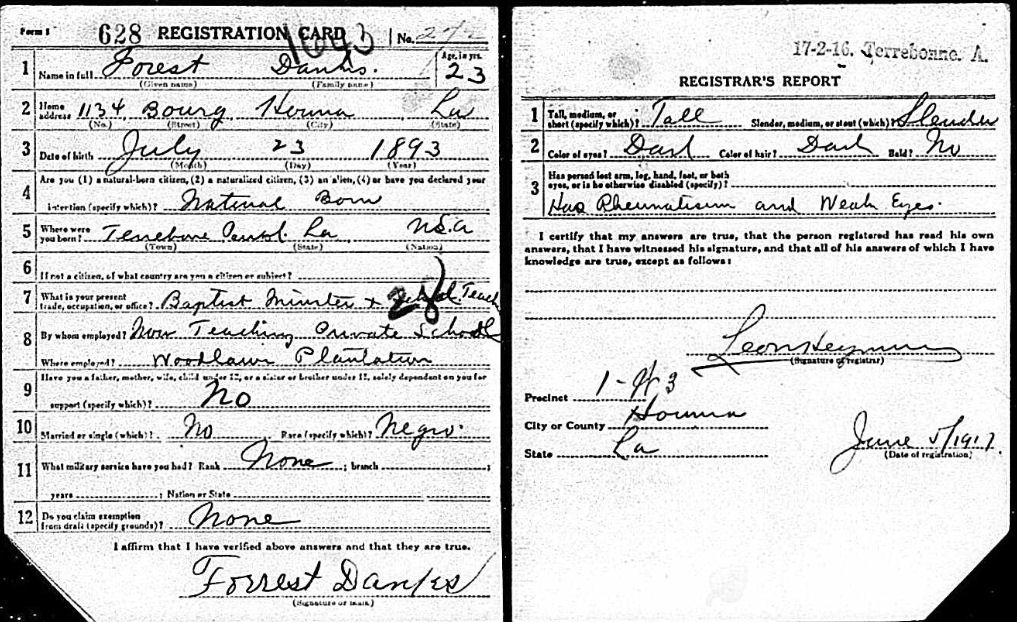 Form 1 628 REGISTRATION CARD No. 272
1043
1 Name in full Forest Danks. Age, in yrs. 23
(Given name) (Family name)
2 Home address 1134 Bourg Houma La
(No.) (Street) (City) (State)
3 Date of birth July 23 1893
(Month) (Day) (Year)
4 Are you (1) a natural-born citizen, (2) a naturalized citizen, (3) an alien, (4) or have you declared your
intention (specify which)? Natural Born
5 Where were you born? Terrebonne La U.S.a
(Town) (State) (Nation)
6 If not a citizen, of what country are you a citizen or subject?
7 What is your present trade, occupation, or office? Baptist Minister + School Teach
28
8 By whom employed? Now Teaching Private School
Where employed? Woodlawn Plantation
9 Have you a father, mother, wife, child under 12, or a sister or brother under 12, solely dependent on you for
support (specify which)? No
10 Married or single (which)? No Race (specify which)? Negro.
11 What military service have you had? Rank None ; branch ;
years ; Nation or State
12 Do you claim exemption from draft (specify grounds)? None
I affirm that I have verified above answers and that they are true.
Forrest Danks
(Signature or mark)
17-2-16. Terrebonne. A.
REGISTRAR'S REPORT
1 Tall, medium, or short (specify which)? Tall Slender, medium, or stout (which)? Slender
2 Color of eyes? Dark Color of hair? Dark Bald? No
3 Has person lost arm, leg, hand, foot, or both
eyes, or is he otherwise disabled (specify)?
Has Rheumatism and Weak Eyes.
I certify that my answers are true, that the person registered has read his own
answers, that I have witnessed his signature, and that all of his answers of which I have
knowledge are true, except as follows:
Leon Heymann
(Signature of registrar)
Precinct 1-W 3
City or County Houma
State La
June 5/1917
(Date of registration)